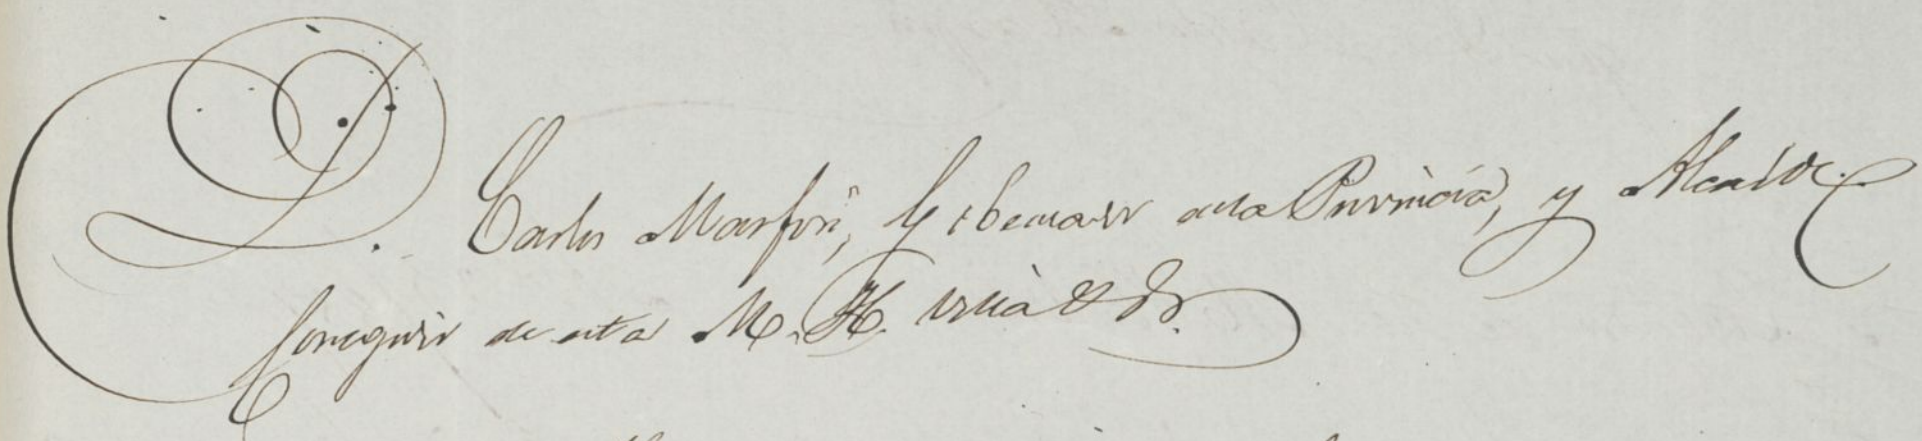 D. Carlos Marfori, Gobernador de la Provincia, y Alcalde
Corregidor de esta M. H. Villa &